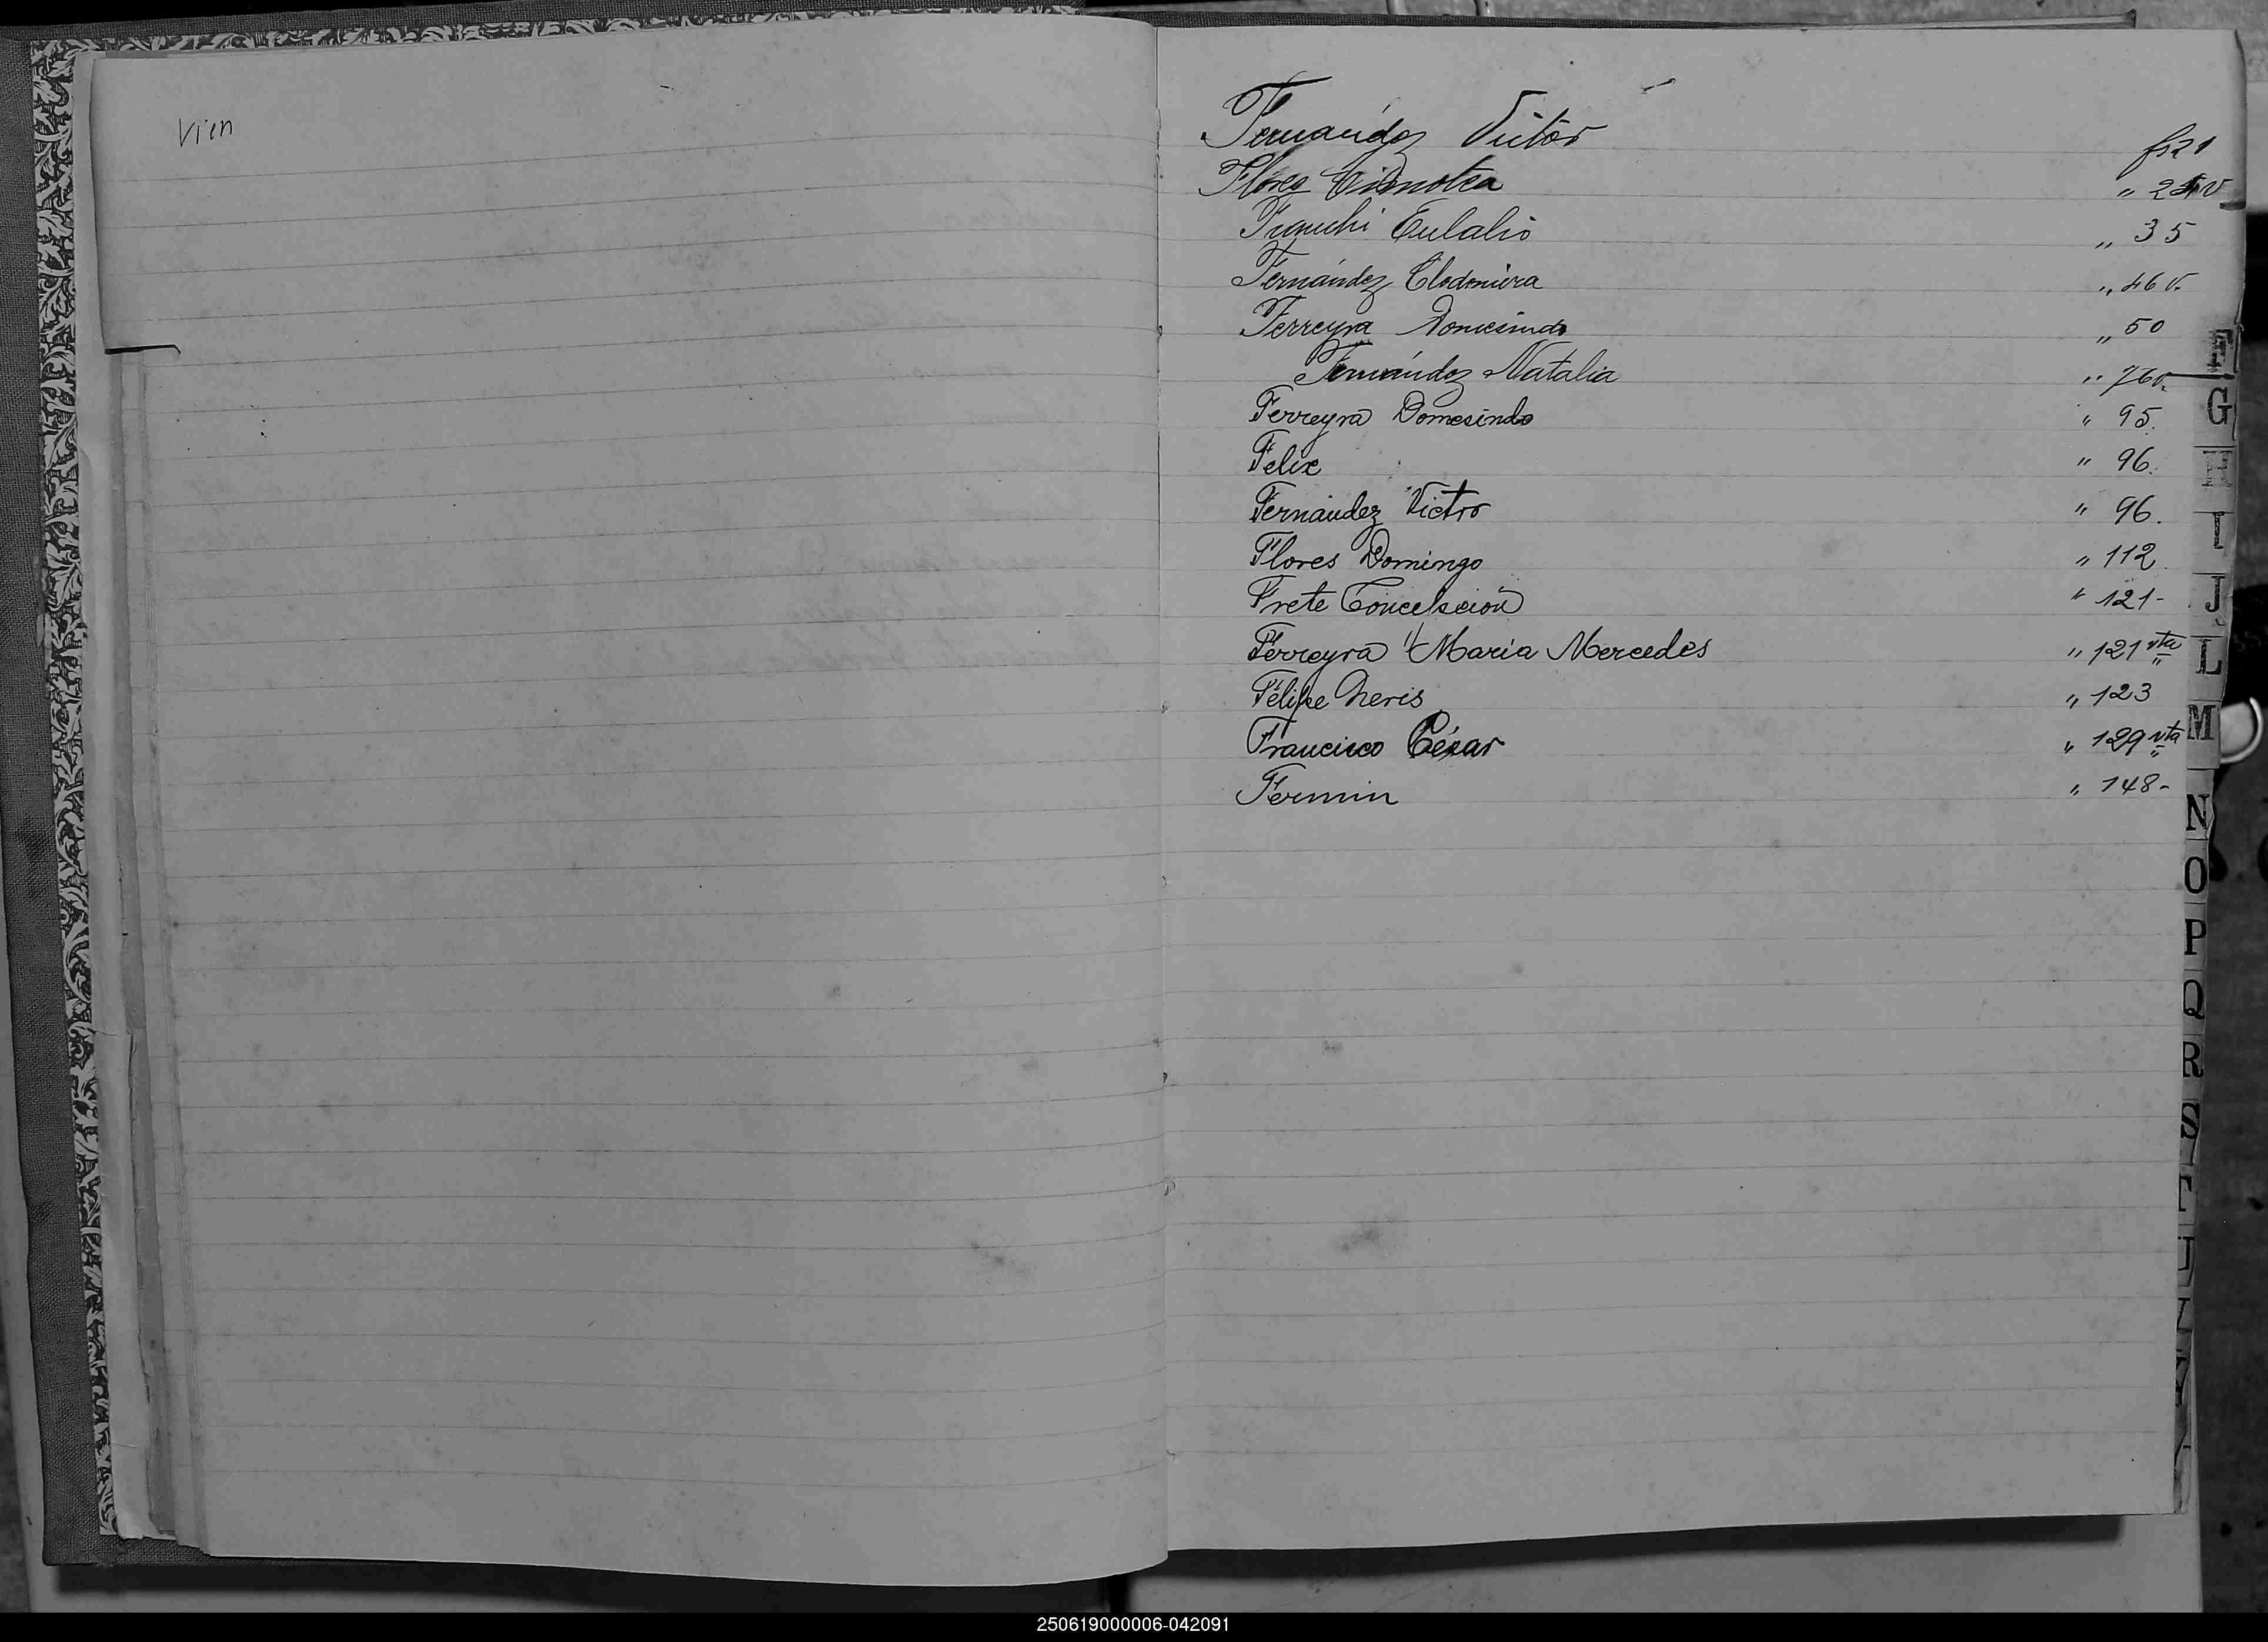 Vien
Fernández Victor fs 21
Flores Timotea " 25 v
Franchi Eulalio " 35
Fernández Clodomira " 46 v.
Ferreyra Domesindo " 50
Fernández Natalia " 76 v.
Ferreyra Domesindo " 95.
Felix " 96.
Fernández Victor " 96.
Flores Domingo " 112
Frete Concepción " 121-
Ferreyra María Mercedes " 121 vta
Félipe Neris " 123
Francisco César " 129 vta
Fermin " 148-
F
G
H
I
J
L
M
N
O
P
Q
R
S
T
U
V
250619000006-042091